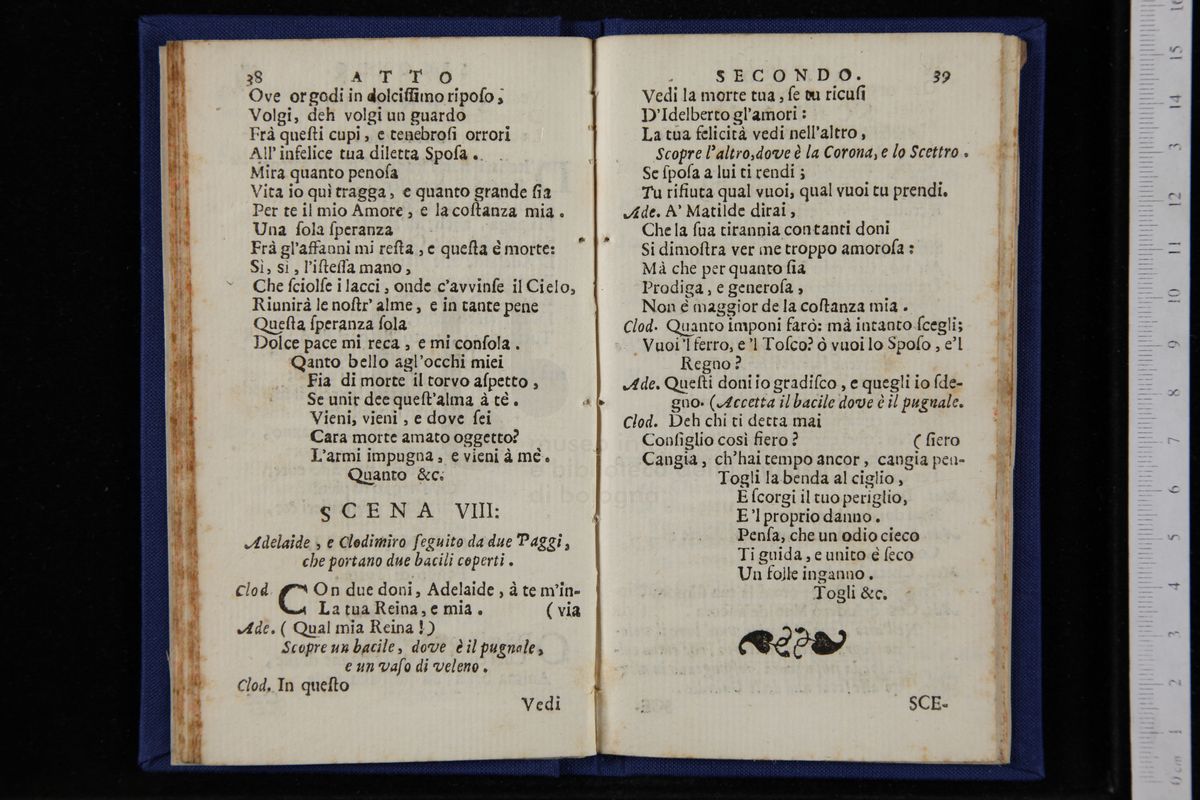 38 ATTO
Ove or godi in dolciſſimo ripoſo,
Volgi, deh volgi un guardo
Frà queſti cupi, e tenebroſi orrori
All' infelice tua diletta Spoſa.
Mira quanto penoſa
Vita io quì tragga, e quanto grande ſia
Per te il mio Amore, e la coſtanza mia.
Una ſola ſperanza
Frà gl'affanni mi reſta, e queſta è morte:
Sì, si, l'iſteſſa mano,
Che ſciolſe i lacci, onde c'avvinſe il Cielo,
Riunirà le noſtr' alme, e in tante pene
Queſta ſperanza ſola
Dolce pace mi reca, e mi conſola.
Qanto bello agl'occhi miei
Fia di morte il torvo aſpetto,
Se unir dee queſt'alma à tè.
Vieni, vieni, e dove ſei
Cara morte amato oggetto?
L'armi impugna, e vieni à mè.
Quanto &c.
SCENA VIII:
Adelaide, e Clodimiro ſeguito da due Paggi,
che portano due bacili coperti.
Clod. COn due doni, Adelaide, à te m'in-
La tua Reina, e mia. (via
Ade. (Qual mia Reina!)
Scopre un bacile, dove è il pugnale,
e un vaſo di veleno.
Clod. In queſto
Vedi
SECONDO. 39
Vedi la morte tua, ſe tu ricuſi
D'Idelberto gl'amori:
La tua felicità vedi nell'altro,
Scopre l'altro, dove è la Corona, e lo Scettro.
Se ſpoſa a lui ti rendi;
Tu rifiuta qual vuoi, qual vuoi tu prendi.
Ade. A' Matilde dirai,
Che la ſua tirannia con tanti doni
Si dimoſtra ver me troppo amoroſa:
Mà che per quanto ſia
Prodiga, e generoſa,
Non è maggior de la coſtanza mia.
Clod. Quanto imponi farò: mà intanto ſcegli;
Vuoi 'l ferro, e 'l Toſco? ò vuoi lo Spoſo, e'l
Regno?
Ade. Queſti doni io gradiſco, e quegli io ſde-
gno. (Accetta il bacile dove è il pugnale.
Clod. Deh chi ti detta mai
Conſiglio così fiero? (ſiero
Cangia, ch'hai tempo ancor, cangia pen-
Togli la benda al ciglio,
E ſcorgi il tuo periglio,
E 'l proprio danno.
Penſa, che un odio cieco
Ti guida, e unito è ſeco
Un folle inganno.
Togli &c.
SCE-